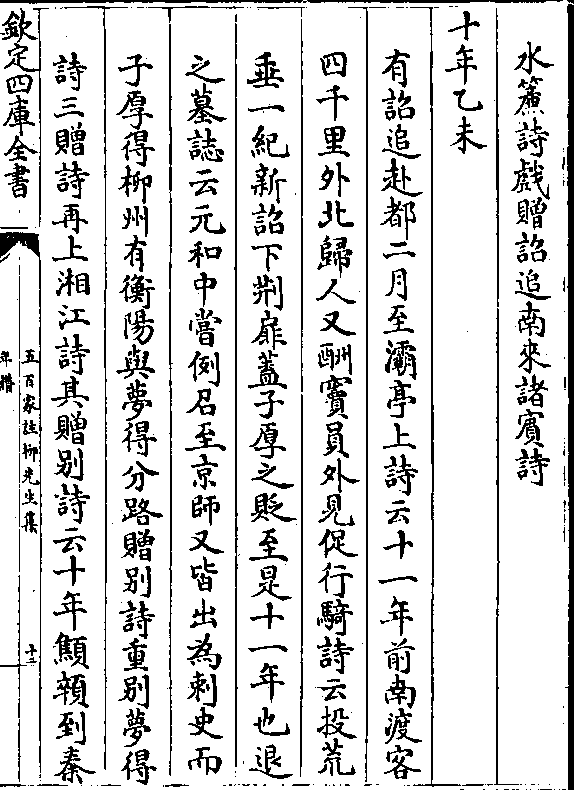 水簾詩戲贈詔追南來諸賓詩
十年乙未
有詔追赴都二月至灞亭上詩云十一年前南渡客
四千里外北歸人又酬竇員外見促行騎詩云投荒
垂一紀新詔下荆扉蓋子厚之貶至是十一年也退
之墓誌云元和中嘗例召至京師又皆出為刺史而
子厚得柳州有衡陽與夢得分路贈别詩重别夢得
詩三贈詩再上湘江詩其贈别詩云十年顦顇到秦
欽定四庫全書
五百家註柳先生集
年譜